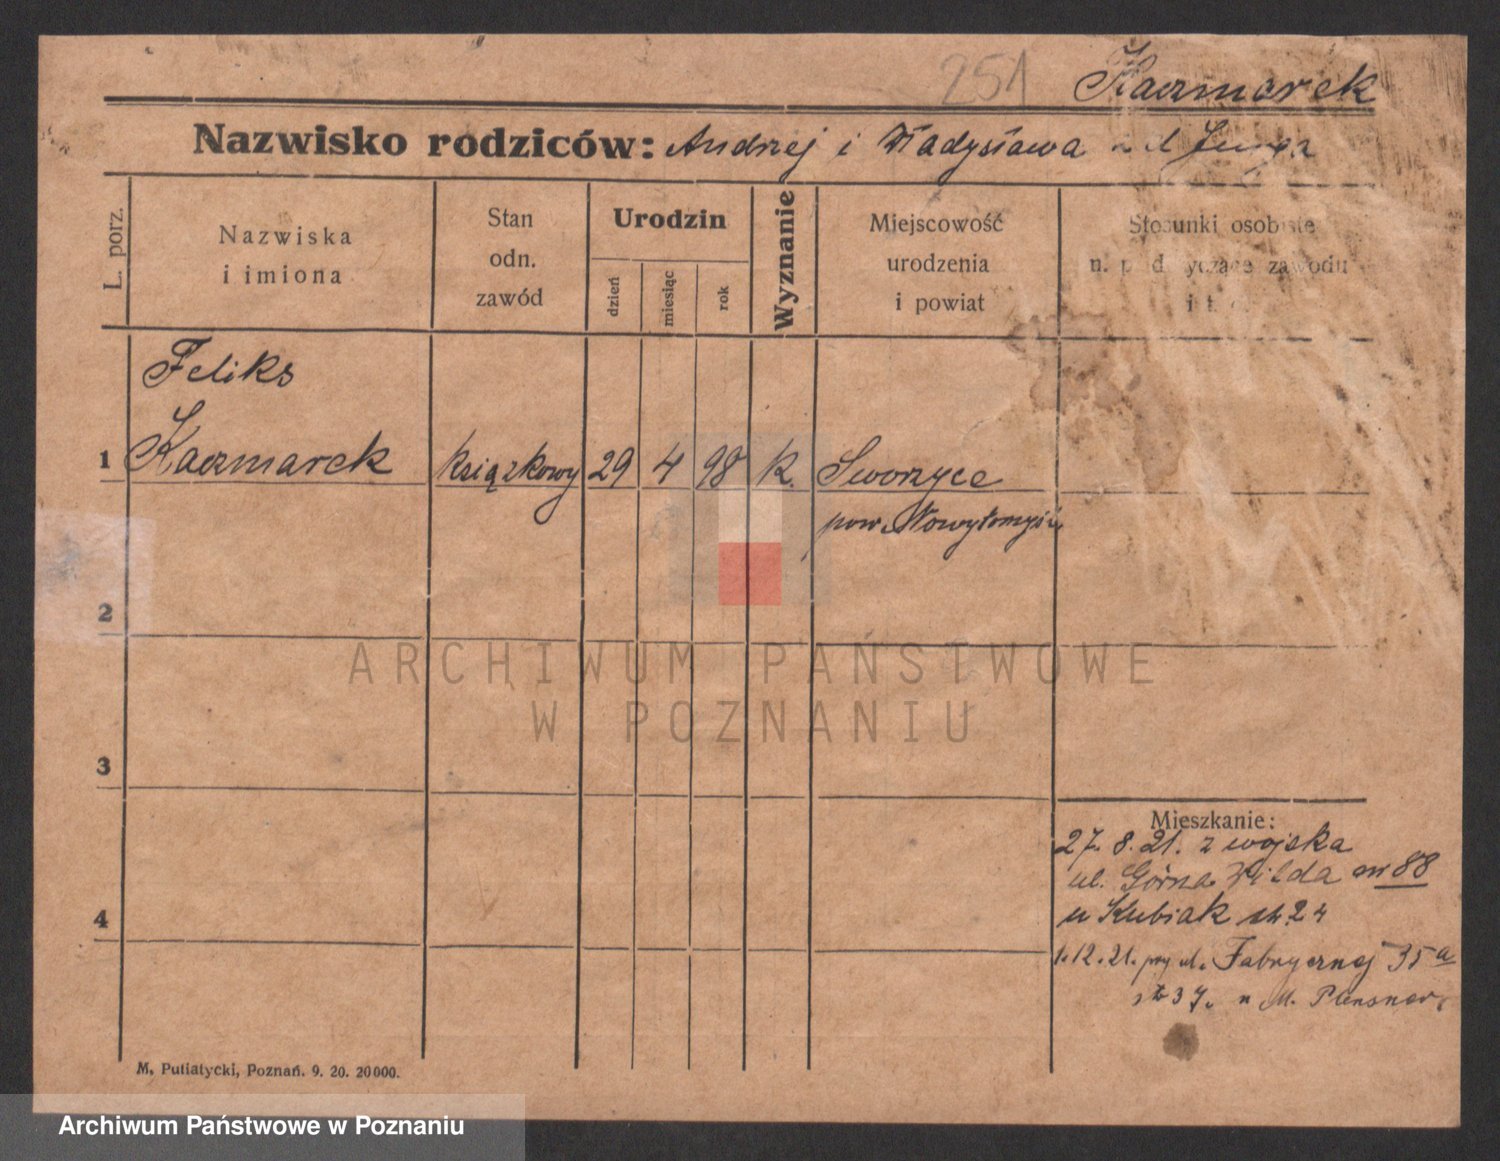 251
Kaczmarek
Nazwisko rodziców: Andrzej i Władysława
L. porz.
Nazwiska
i imiona
Stan
odn.
zawód
Urodzin
dzień
miesiąc
rok
Wyznanie
Miejscowość
urodzenia
i powiat
Stosunki osobiste
zawodu
Feliks
1 Kaczmarek książkowy 29 4 98 k. Sworzyce
pow. Nowytomyśl
2
3
4
ARCHIWUM PAŃSTWOWE
W POZNANIU
Mieszkanie:
27. 8. 21. z wojska
ul. Górna Wilda nr 88
u Kubiak 24
1. 12. 21. przy ul. Fabrycznej 35a
37. u M.
M. Putiatycki, Poznań. 9. 20. 20000.
Archiwum Państwowe w Poznaniu